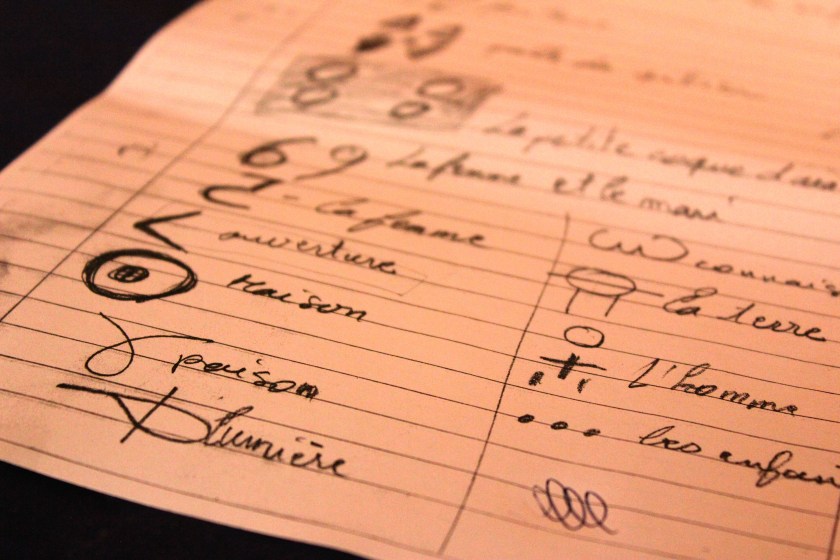 La petite coque d'
69 La femme et le mari
La femme
ouverture
Maison
poison
lumière
connais
La terre
L'homme
Les enfan